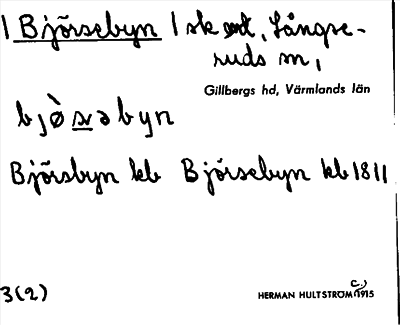 1 Björsebyn 1 sk , Långse-
ruds sn,
Gillbergs hd, Värmlands län
Björsbyn kb Björsebyn kb 1811
3(2)
HERMAN HULTSTRÖM 1915